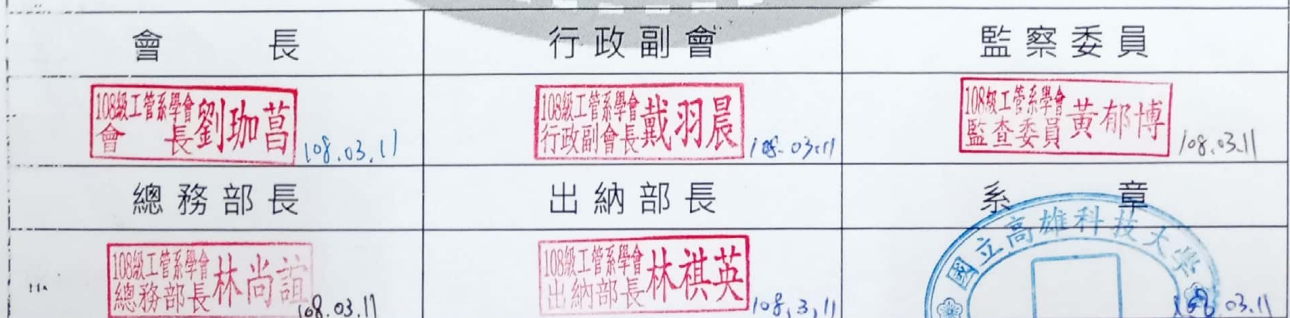 會長
行政副會
監察委員
108級工管系學會
會長
劉珈菖
108.03.11
108級工管系學會
行政副會長
戴羽晨
108.03.11
108級工管系學會
監查委員
黃郁博
108.03.11
總務部長
出納部長
系章
108級工管系學會
總務部長
林尚誼
108.03.11
108級工管系學會
出納部長
林祺英
108,3,11
國立高雄科技大學
108.03.11